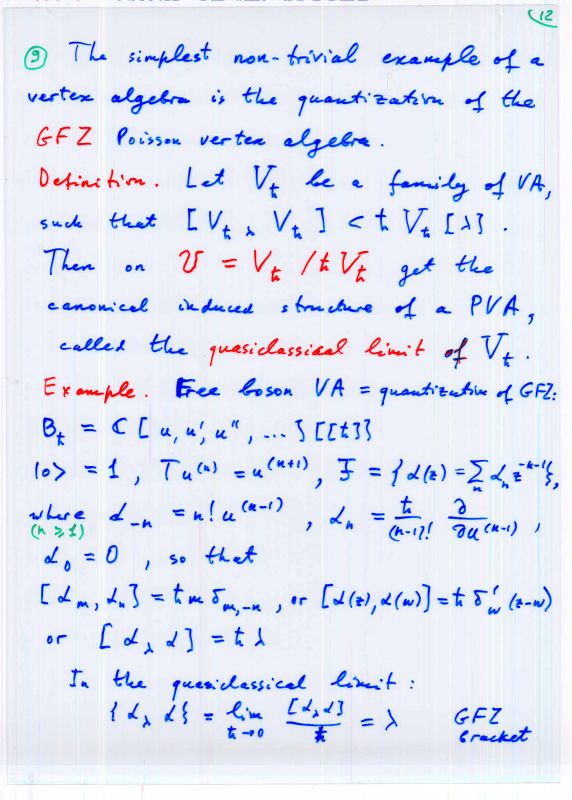 12
9 The simplest non-trivial example of a
vertex algebra is the quantization of the
GFZ Poisson vertex algebra.
Definition. Let V_ħ be a family of VA,
such that [V_ħ λ V_ħ] ⊂ ħ V_ħ [λ].
Then on 𝒱 = V_ħ / ħ V_ħ get the
canonical induced structure of a PVA,
called the quasiclassical limit of V_ħ.
Example. Free boson VA = quantization of GFZ:
B_ħ = ℂ [u, u', u'', ...] [[ħ]]
|0> = 1, Tu^(n) = u^(n+1), F = {α(z) = Σ_n α_n z^{-n-1}},
where α_{-n} = n! u^(n-1), α_n = ħ/(n-1)! ∂/∂u^(n-1),
(n ≥ 1)
α_0 = 0, so that
[α_m, α_n] = ħ m δ_{m,-n}, or [α(z), α(w)] = ħ δ'_w (z-w)
or [α_λ α] = ħ λ
In the quasiclassical limit:
{α_λ α} = lim_{ħ→0} [α_λ α]/ħ = λ GFZ
bracket